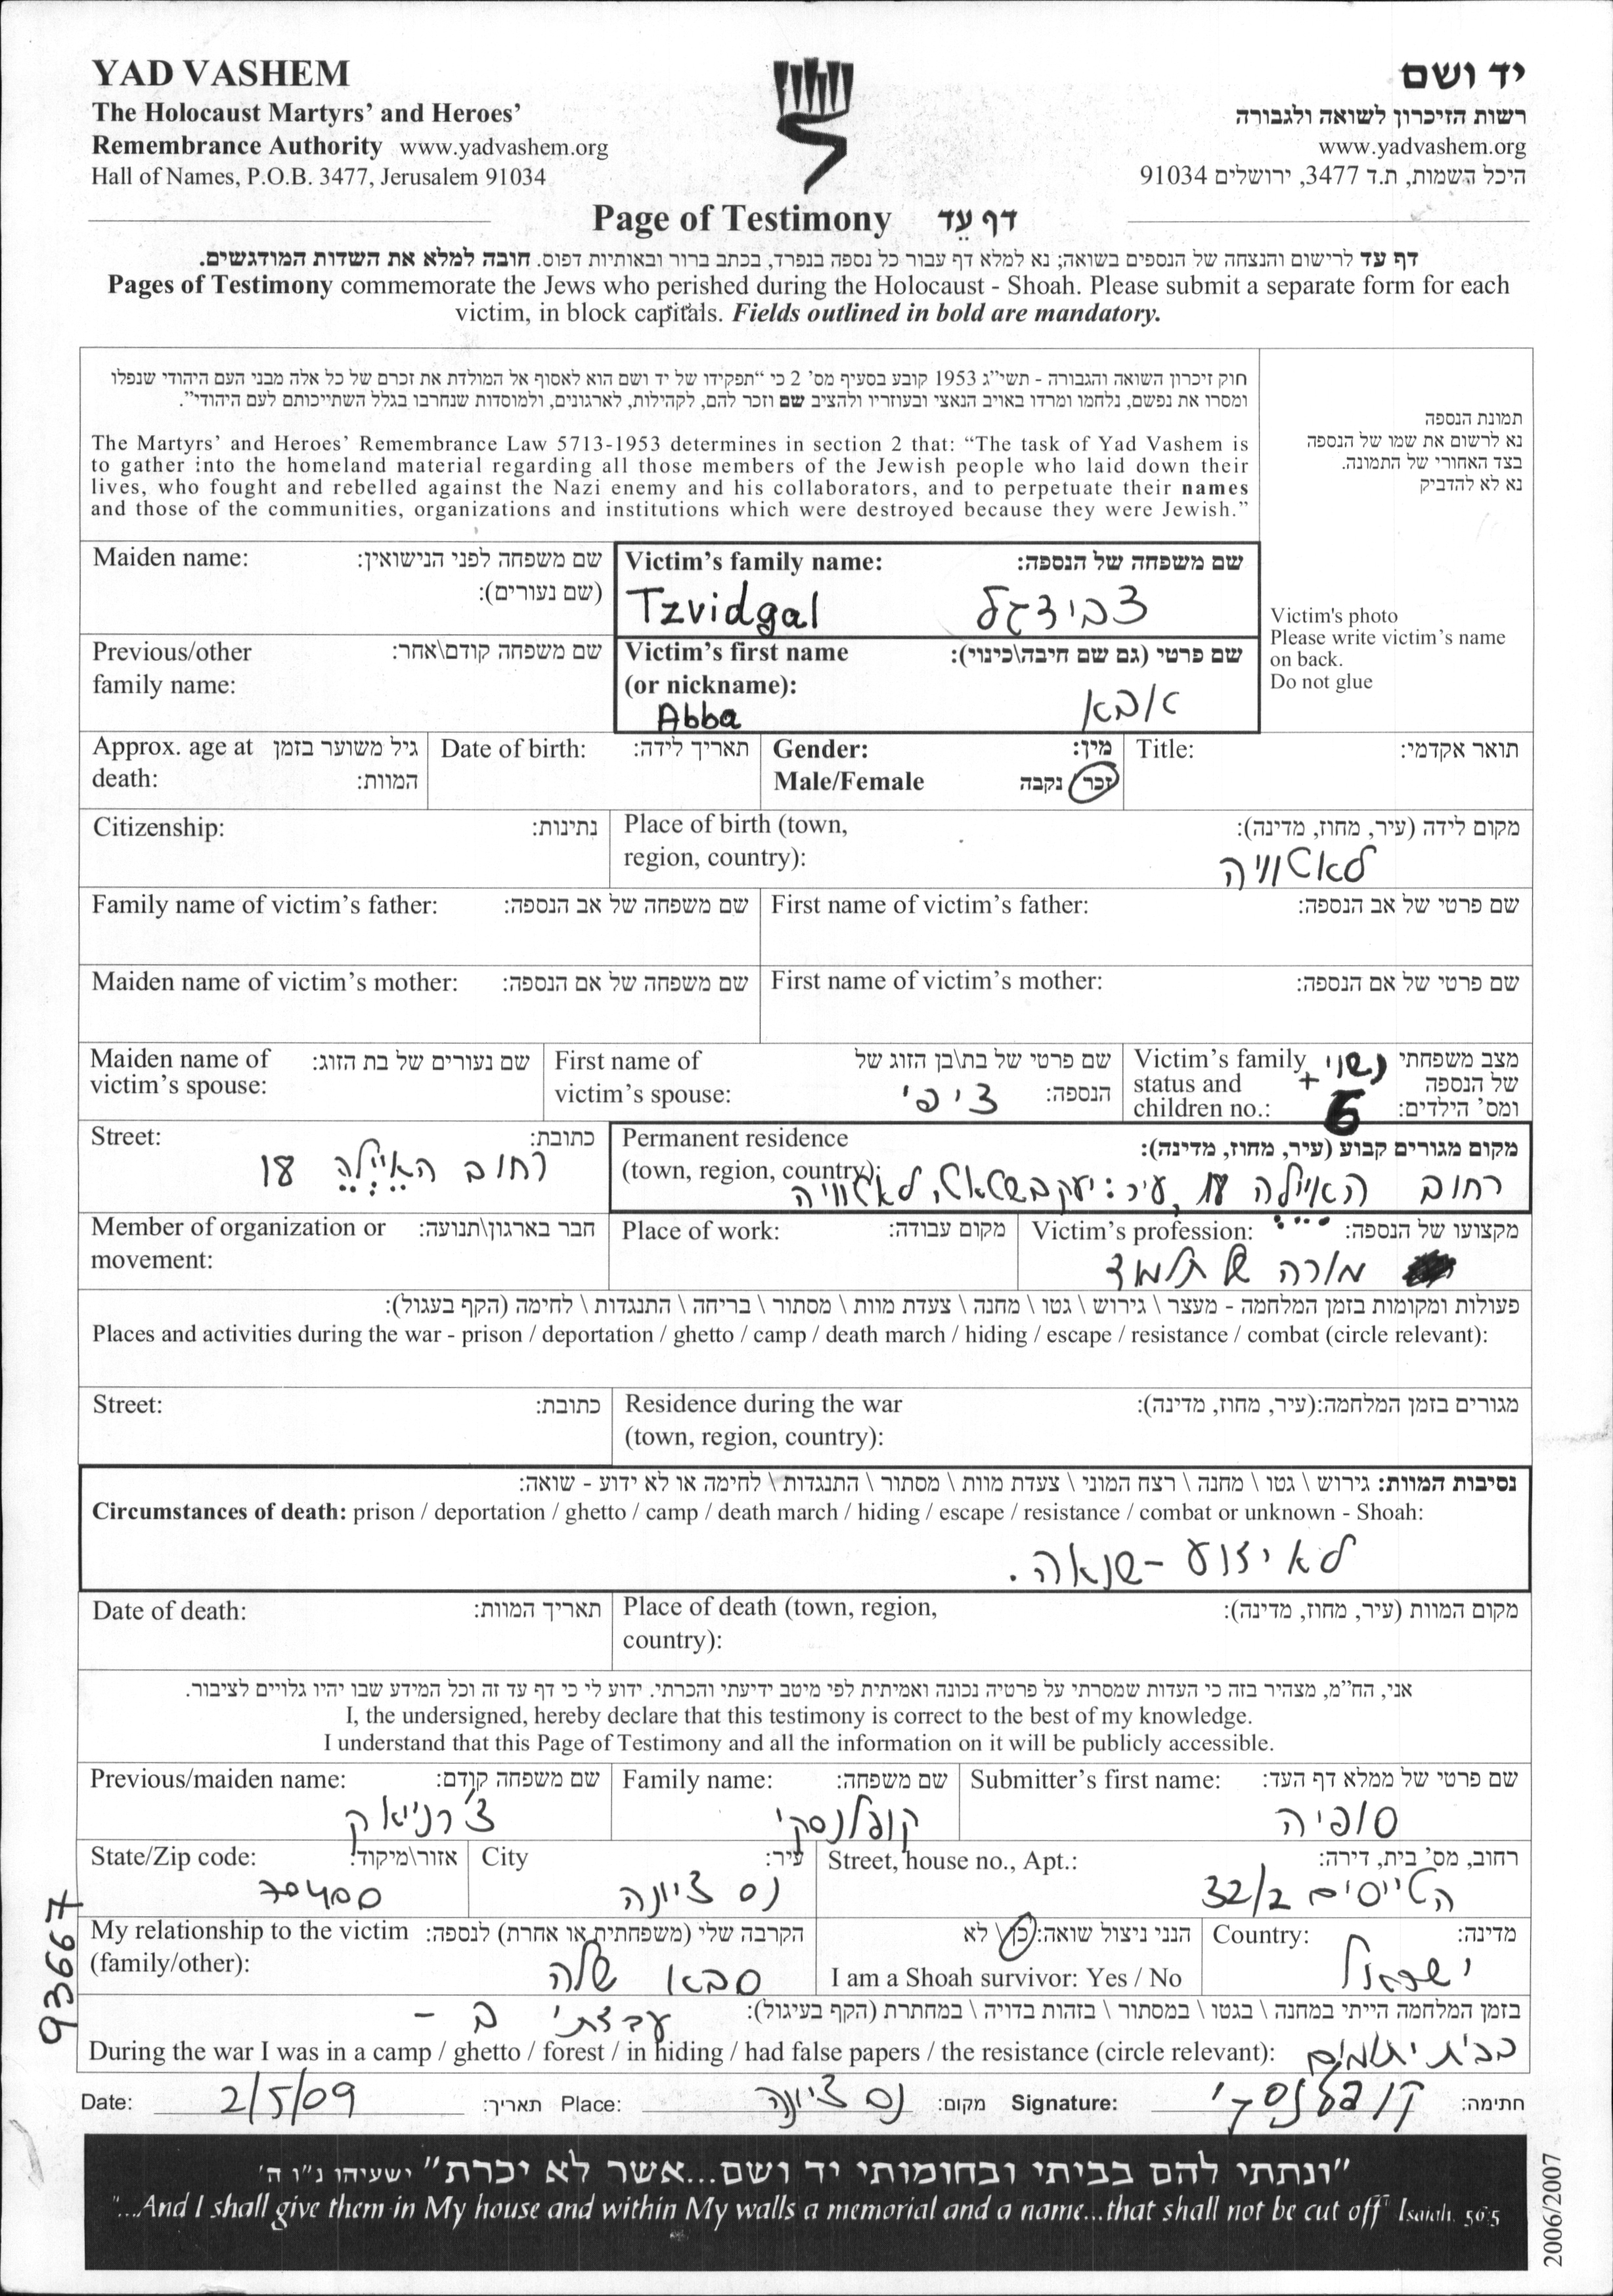 YAD VASHEM
The Holocaust Martyrs' and Heroes'
Remembrance Authority www.yadvashem.org
Hall of Names, P.O.B. 3477, Jerusalem 91034
יד ושם
רשות הזיכרון לשואה ולגבורה
www.yadvashem.org
היכל השמות, ת.ד 3477, ירושלים 91034
Page of Testimony דף עֵד
דף עד לרישום והנצחה של הנספים בשואה; נא למלא דף עבור כל נספה בנפרד, בכתב ברור ובאותיות דפוס. חובה למלא את השדות המודגשים.
Pages of Testimony commemorate the Jews who perished during the Holocaust - Shoah. Please submit a separate form for each
victim, in block capitals. Fields outlined in bold are mandatory.
חוק זיכרון השואה והגבורה - תשי"ג 1953 קובע בסעיף מס' 2 כי "תפקידו של יד ושם הוא לאסוף אל המולדת את זכרם של כל אלה מבני העם היהודי שנפלו
ומסרו את נפשם, נלחמו ומרדו באויב הנאצי ובעוזריו ולהציב שם וזכר להם, לקהילות, לארגונים, ולמוסדות שנחרבו בגלל השתייכותם לעם היהודי".
The Martyrs' and Heroes' Remembrance Law 5713-1953 determines in section 2 that: "The task of Yad Vashem is
to gather into the homeland material regarding all those members of the Jewish people who laid down their
lives, who fought and rebelled against the Nazi enemy and his collaborators, and to perpetuate their names
and those of the communities, organizations and institutions which were destroyed because they were Jewish."
תמונת הנספה
נא לרשום את שמו של הנספה
בצד האחורי של התמונה.
נא לא להדביק
Victim's photo
Please write victim's name
on back.
Do not glue
Maiden name: שם משפחה לפני הנישואין:
(שם נעורים):
Victim's family name: שם משפחה של הנספה:
Tzvidgal צבידגל
Previous/other שם משפחה קודם\אחר:
family name:
Victim's first name שם פרטי (גם שם חיבה\כינוי):
(or nickname):
Abba אבא
Approx. age at גיל משוער בזמן
death: המוות:
Date of birth: תאריך לידה:
Gender: מין:
Male/Female זכר נקבה
Title: תואר אקדמי:
Citizenship: נתינות:
Place of birth (town, מקום לידה (עיר, מחוז, מדינה):
region, country):
לאטוויה
Family name of victim's father: שם משפחה של אב הנספה:
First name of victim's father: שם פרטי של אב הנספה:
Maiden name of victim's mother: שם משפחה של אם הנספה:
First name of victim's mother: שם פרטי של אם הנספה:
Maiden name of שם נעורים של בת הזוג:
victim's spouse:
First name of שם פרטי של בת\בן הזוג של
victim's spouse: הנספה:
ציפי
Victim's family מצב משפחתי
status and של הנספה
children no.: ומס' הילדים:
נשוי +
Street: כתובת:
רחוב האיילה 18
Permanent residence מקום מגורים קבוע (עיר, מחוז, מדינה):
(town, region, country):
רחוב האיילה 18, עיר: יעקבשטאט, לאטוויה
Member of organization or חבר בארגון\תנועה:
movement:
Place of work: מקום עבודה:
Victim's profession: מקצועו של הנספה:
מורה של תלמוד
פעולות ומקומות בזמן המלחמה - מעצר \ גירוש \ גטו \ מחנה \ צעדת מוות \ מסתור \ בריחה \ התנגדות \ לחימה (הקף בעגול):
Places and activities during the war - prison / deportation / ghetto / camp / death march / hiding / escape / resistance / combat (circle relevant):
Street: כתובת:
Residence during the war מגורים בזמן המלחמה:(עיר, מחוז, מדינה):
(town, region, country):
נסיבות המוות: גירוש \ גטו \ מחנה \ רצח המוני \ צעדת מוות \ מסתור \ התנגדות \ לחימה או לא ידוע - שואה:
Circumstances of death: prison / deportation / ghetto / camp / death march / hiding / escape / resistance / combat or unknown - Shoah:
לא ידוע - שואה.
Date of death: תאריך המוות:
Place of death (town, region, מקום המוות (עיר, מחוז, מדינה):
country):
אני, הח"מ, מצהיר בזה כי העדות שמסרתי על פרטיה נכונה ואמיתית לפי מיטב ידיעתי והכרתי. ידוע לי כי דף עד זה וכל המידע שבו יהיו גלויים לציבור.
I, the undersigned, hereby declare that this testimony is correct to the best of my knowledge.
I understand that this Page of Testimony and all the information on it will be publicly accessible.
Previous/maiden name: שם משפחה קודם:
צ'רניאק
Family name: שם משפחה:
קופלנסקי
Submitter's first name: שם פרטי של ממלא דף העד:
סופיה
State/Zip code: אזור\מיקוד:
70400
City עיר:
נס ציונה
Street, house no., Apt.: רחוב, מס' בית, דירה:
הטייסים 32/2
My relationship to the victim הקרבה שלי (משפחתית או אחרת) לנספה:
(family/other):
סבא שלה
הנני ניצול שואה: כן \ לא
I am a Shoah survivor: Yes / No
Country: מדינה:
ישראל
בזמן המלחמה הייתי במחנה \ בגטו \ במסתור \ בזהות בדויה \ במחתרת (הקף בעיגול):
ב -
During the war I was in a camp / ghetto / forest / in hiding / had false papers / the resistance (circle relevant):
בבית יתומים
Date: 2/5/09 תאריך: Place: נס ציונה מקום: Signature: קופלנסקי חתימה:
"ונתתי להם בביתי ובחומותי יד ושם...אשר לא יכרת" ישעיהו נ"ו ה'
"...And I shall give them in My house and within My walls a memorial and a name...that shall not be cut off" Isaiah 56:5
93667
2006/2007